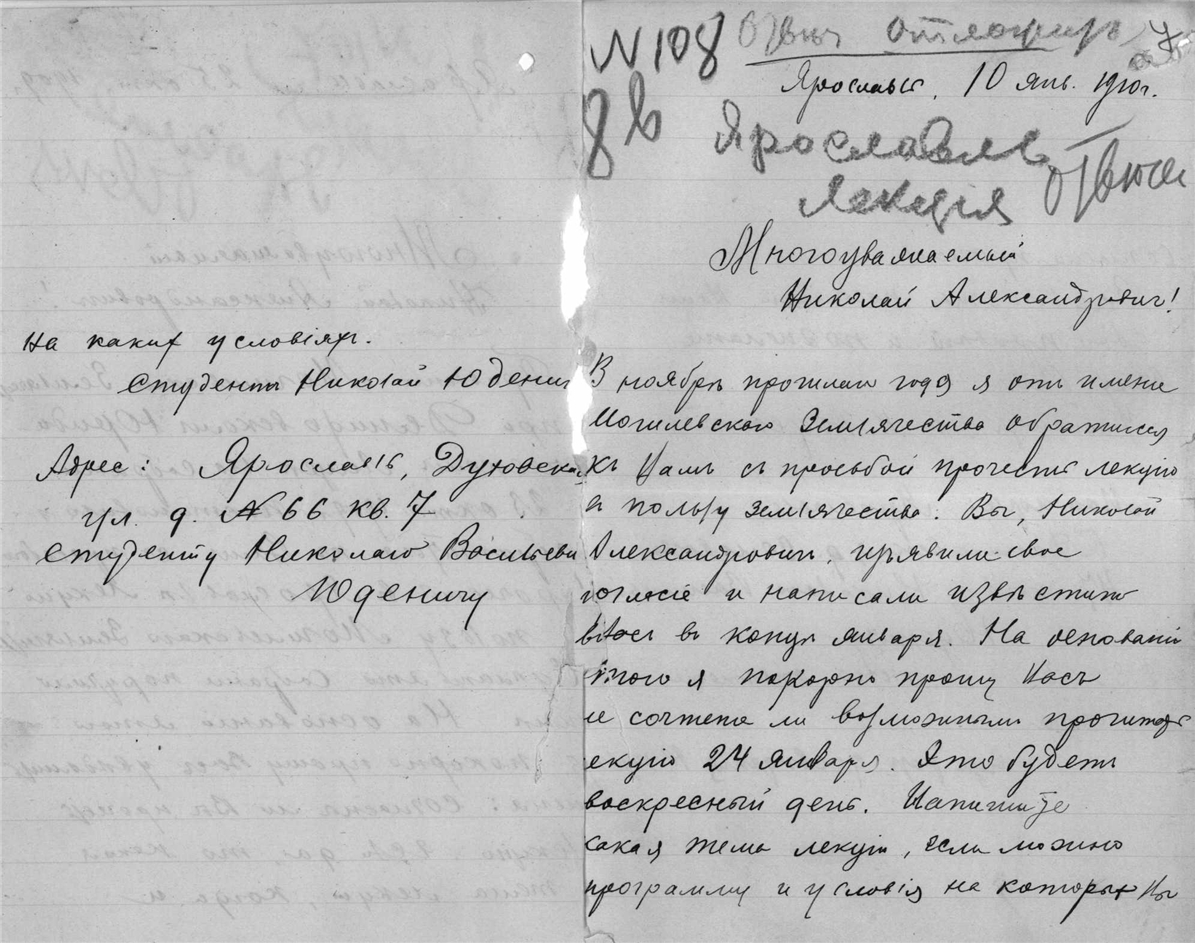 На каких условіях.
Студентъ Николай Юденич
Адрес: Ярославль, Духовская
ул. д. № 66 кв. 7
Студенту Николаю Васильеви
Юденичу
N 108 отложить
Ярославль, 10 янв. 1910 г.
8 в Ярославль
лекція
Многоуважаемый
Николай Александрович!
В ноябрѣ прошлаго года я отъ имени
Могилевскаго Землячества обратился
къ Вамъ съ просьбой прочесть лекцію
в пользу землячества. Вы, Николай
Александрович, изъявили свое
согласіе и написали извѣстить
Васъ въ концѣ января. На основаніи
этого я покорно прошу Васъ
не сочтете ли возможнымъ прочитать
лекцію 24 января. Это будетъ
воскресный день. Напишите
какая тема лекціи, если можно
программу и условія на которых Вы